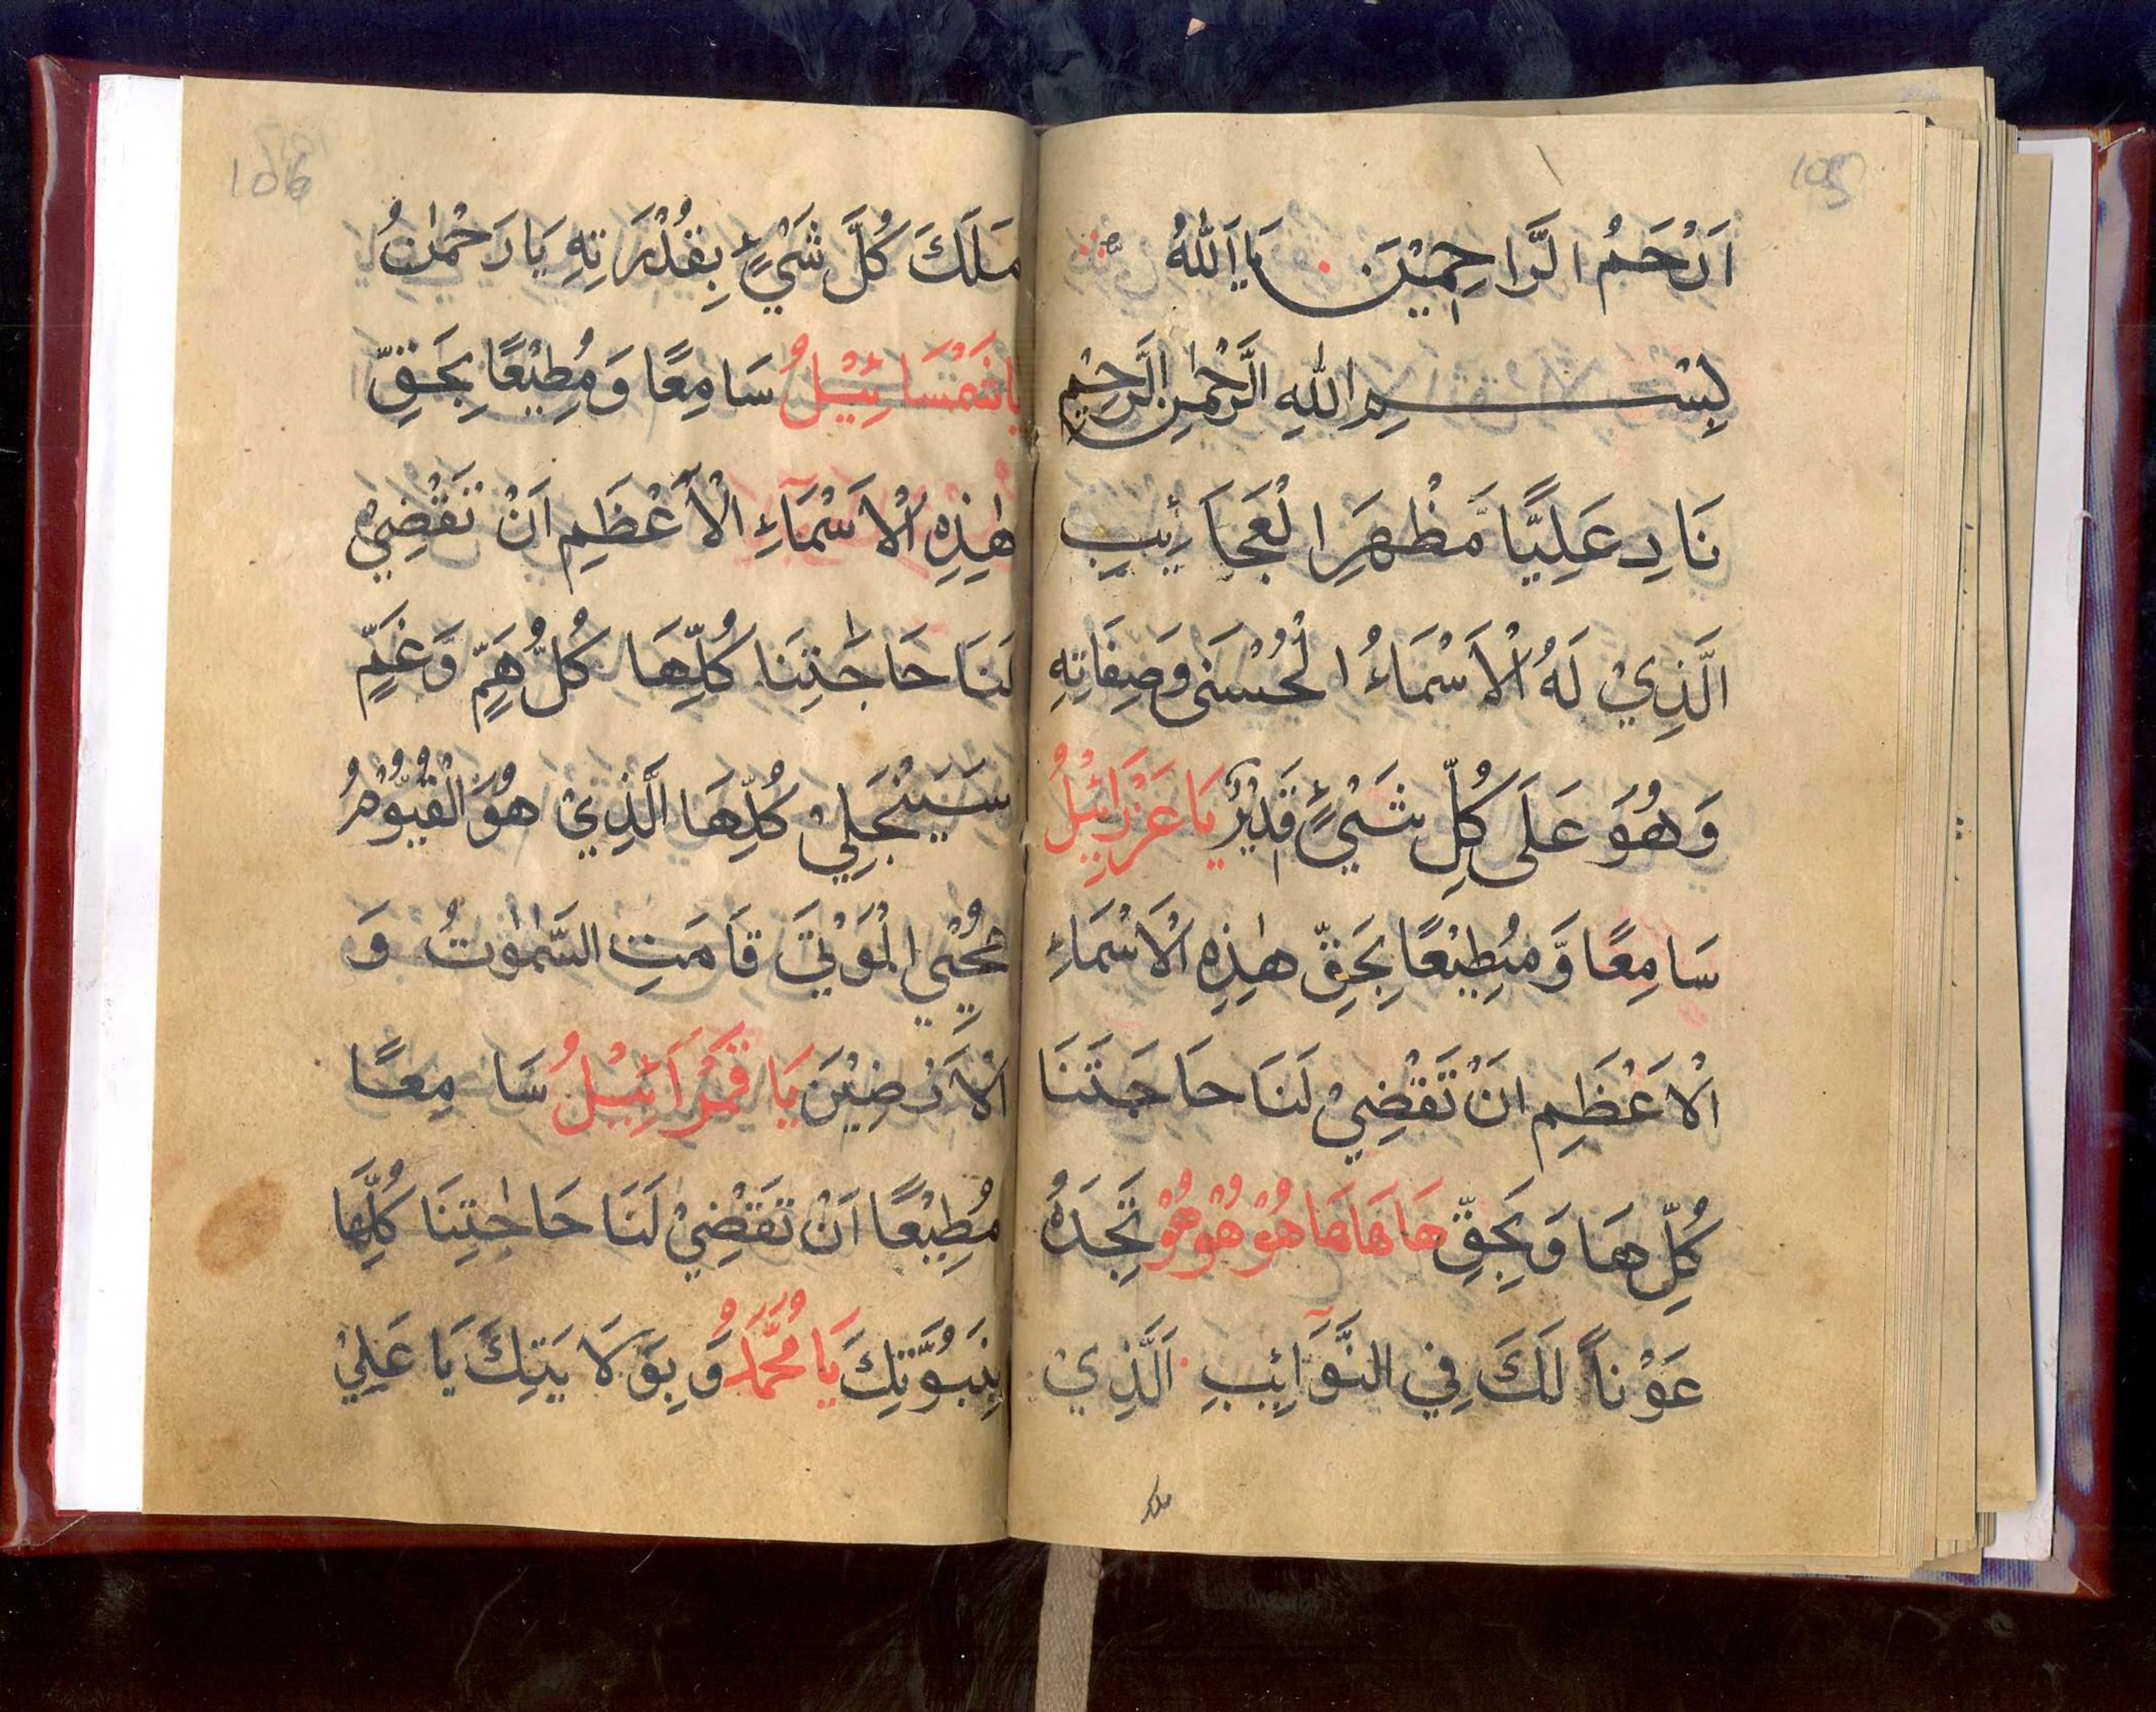 105
اَرْحَمُ الرَّاحِمِيْنَ يَا اَللّٰهُ
بِسْمِ اللّٰهِ الرَّحْمٰنِ الرَّحِيْمِ
نَادِ عَلِيًّا مَّظْهَرَ الْعَجَائِبِ
الَّذِيْ لَهُ الْاَسْمَاءُ الْحُسْنٰى وَصِفَاتِهِ
وَهُوَ عَلَى كُلِّ شَيْءٍ قَدِيْرٌ يَا عَزْرَائِيْلُ
سَامِعًا وَّمُطِيْعًا بِحَقِّ هٰذِهِ الْاَسْمَاءِ
الْاَعْظَمِ اَنْ تَقْضِيْ لَنَا حَاجَتَنَا
كُلِّهَا وَبِحَقِّ هَا هَا هَا هُوْ هُوْ هُوْ تَجِدْهُ
عَوْنًا لَكَ فِي النَّوَائِبِ اَلَّذِيْ
ملك
106
مَلَكَ كُلَّ شَيْءٍ بِقُدْرَتِهِ يَا رَحْمٰنُ
يَا شَمْسَائِيْلُ سَامِعًا وَمُطِيْعًا بِحَقِّ
هٰذِهِ الْاَسْمَاءِ الْاَعْظَمِ اَنْ تَقْضِيْ
لَنَا حَاجَتِنَا كُلِّهَا كُلُّ هَمٍّ وَّغَمٍّ
سَيَنْجَلِيْ كُلِّهَا الَّذِيْ هُوَ الْقَيُّوْمُ
يُحْيِي الْمَوْتٰى قَامَتِ السَّمٰوٰتُ وَ
الْاَرْضِيْنَ يَا قَمْرَائِيْلُ سَامِعًا
مُطِيْعًا اَنْ تَقْضِيْ لَنَا حَاجٰتِنَا كُلِّهَا
بِنُبُوَّتِكَ يَا مُحَمَّدُ وَ بِوَلَايَتِكَ يَا عَلِيُّ